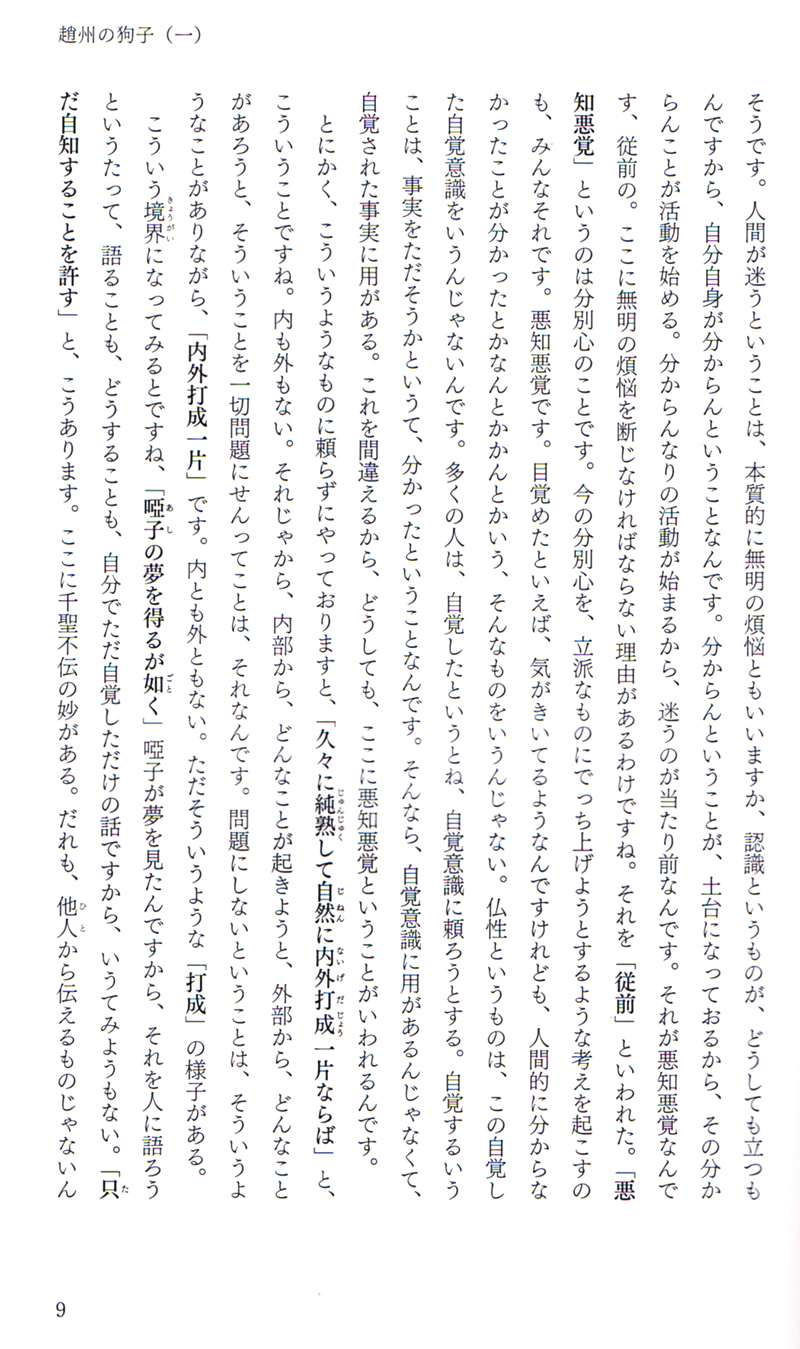 趙州の狗子（一）
そうです。人間が迷うということは、本質的に無明の煩悩ともいいますか、認識というものが、どうしても立つも
んですから、自分自身が分からんということなんです。分からんということが、土台になっておるから、その分か
らんことが活動を始める。分からんなりの活動が始まるから、迷うのが当たり前なんです。それが悪知悪覚なんで
す、従前の。ここに無明の煩悩を断じなければならない理由があるわけですね。それを「従前」といわれた。「悪
知悪覚」というのは分別心のことです。今の分別心を、立派なものにでっち上げようとするような考えを起こすの
も、みんなそれです。悪知悪覚です。目覚めたといえば、気がきいてるようなんですけれども、人間的に分からな
かったことが分かったとかなんとかかんとかいう、そんなものをいうんじゃない。仏性というものは、この自覚し
た自覚意識をいうんじゃないんです。多くの人は、自覚したというとね、自覚意識に頼ろうとする。自覚するいう
ことは、事実をただそうかというて、分かったということなんです。そんなら、自覚意識に用があるんじゃなくて、
自覚された事実に用がある。これを間違えるから、どうしても、ここに悪知悪覚ということがいわれるんです。
とにかく、こういうようなものに頼らずにやっておりますと、「久々に純熟して自然に内外打成一片ならば」と、
こういうことですね。内も外もない。それじゃから、内部から、どんなことが起きようと、外部から、どんなこと
があろうと、そういうことを一切問題にせんってことは、それなんです。問題にしないということは、そういうよ
うなことがありながら、「内外打成一片」です。内とも外ともない。ただそういうような「打成」の様子がある。
こういう境界になってみるとですね、「啞子の夢を得るが如く」啞子が夢を見たんですから、それを人に語ろう
というたって、語ることも、どうすることも、自分でただ自覚しただけの話ですから、いうてみようもない。「只
だ自知することを許す」と、こうあります。ここに千聖不伝の妙がある。だれも、他人から伝えるものじゃないん
9